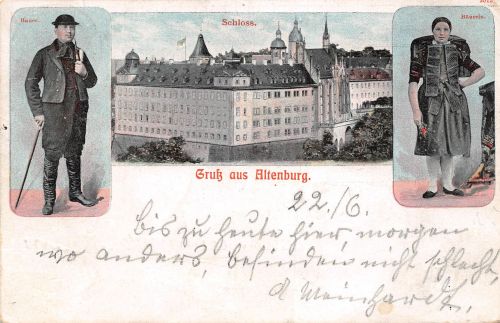 Bauer.
Schloss.
Bäuerin.
Gruß aus Altenburg.
22./6.
Bis zu heute hier, morgen
wo anders, befinden nicht schlecht,
A Meinhardt